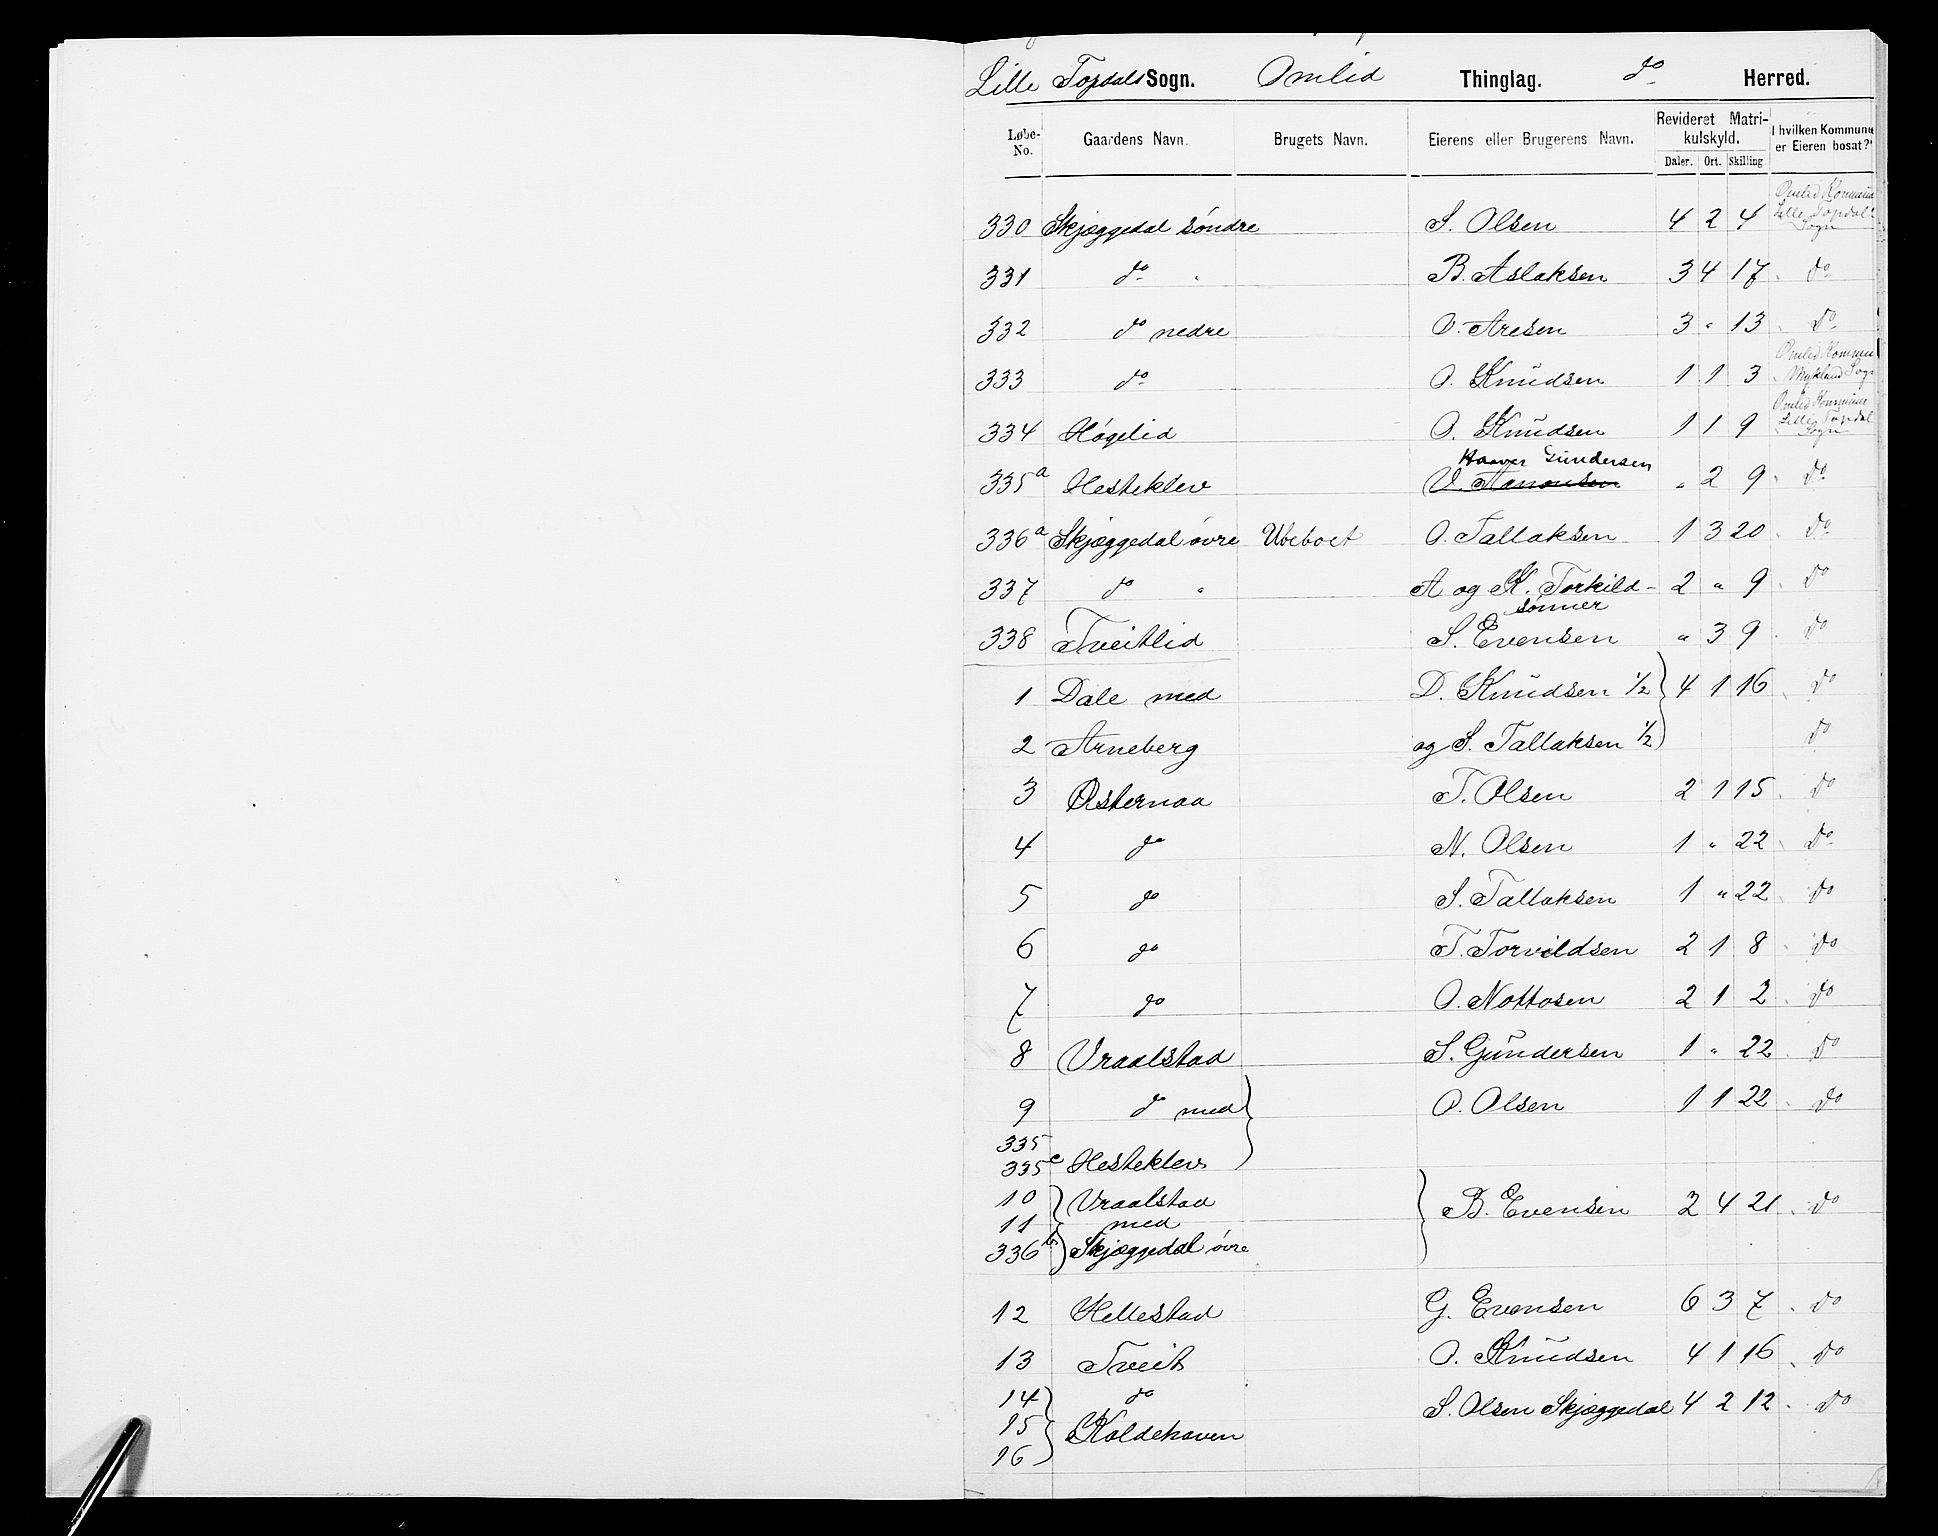 Lille Topdals Sogn. Omlid Thinglag. do Herred.
Løbe-No. Gaardens Navn. Brugets Navn. Eierens eller Brugerens Navn. Revideret Matrikulskyld. Daler. Ort. Skilling I hvilken Kommune er Eieren bosat?
330 Skjæggedal söndre S. Olsen 4 2 4 Omlid Kommune Lille Topdals Sogn
331 do " B. Aslaksen 3 4 17 do
332 do nedre O. Aresen 3 " 13 do
333 do O. Knudsen 1 1 3 Omlid Kommune Mykland Sogn
334 Högelid O. Knudsen 1 1 9 Omlid Kommune Lille Topdal Sogn
Haaver Gundersen
335a Hesteklev " 2 9 do
336a Skjæggedal övre Ubeboet O. Tallaksen 1 3 20 do
337 do " A og K. Torkild- 2 " 9 do
sönner
338 Tveitlid S. Evensen " 3 9 do
1 Dale med D. Knudsen 1/2 4 1 16 do
2 Arneberg og S. Tallaksen 1/2 do
3 Osternaa T. Olsen 2 1 15 do
4 do N. Olsen 1 " 22 do
5 do S. Tallaksen 1 " 22 do
6 do T. Torvildsen 2 1 8 do
7 do O. Nottosen 2 1 2 do
8 Vraalstad S. Gundersen 1 " 22 do
9 do med O. Olsen 1 1 22 do
335
335c Hesteklev
10 Vraalstad B. Evensen 2 4 21 do
11 med
336b Skjæggedal övre
12 Hellestad G. Evensen 6 3 7 do
13 Tveit O. Knudsen 4 1 16 do
14 do S. Olsen Skjæggedal 4 2 12 do
15 Koldehaven
16